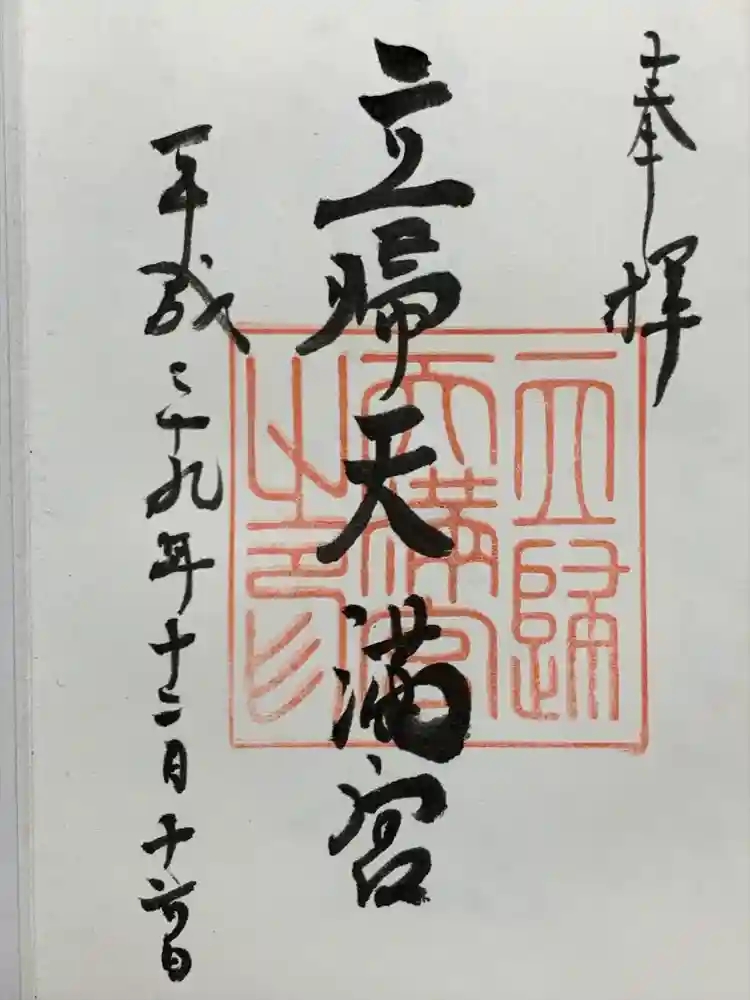 奉拝
立帰天満宮
平成二十九年十二月十六日
立歸
天満宮
之印